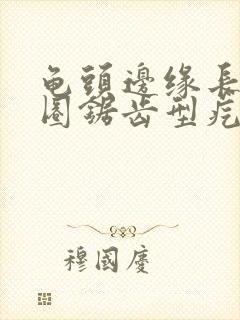 龟頭邊缘長
圈鋸齿型疙
穆國慶